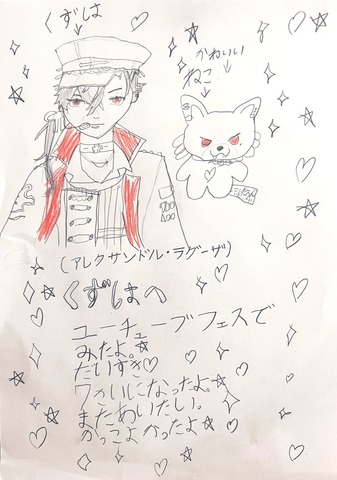 くずしは
かわいい
ねこ
(アレクサンドル・ラグーザ)
くずはへ
ユーチューブフェスで
みたよ。☆
だいすき♡
7かいじになったよ。☆
またあいたい。
かっこよかったよ☆